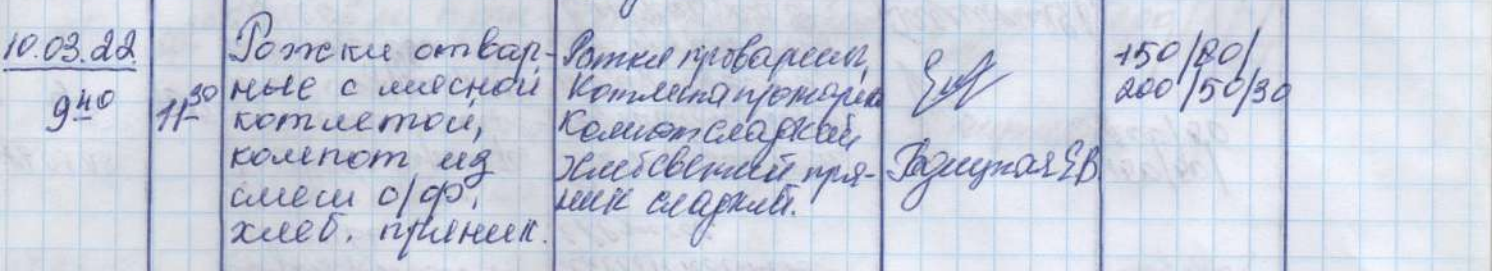 10.03.22
9 40
11 30
Рожки отвар-
ные с мясной
котлетой,
компот из
смеси с/ф,
хлеб, пряник.
Рожки проварены,
Котлета прожарена
Компот сладкий
Хлеб свежий пря-
ник сладкий.
ЕВ
150/80/
200/50/30